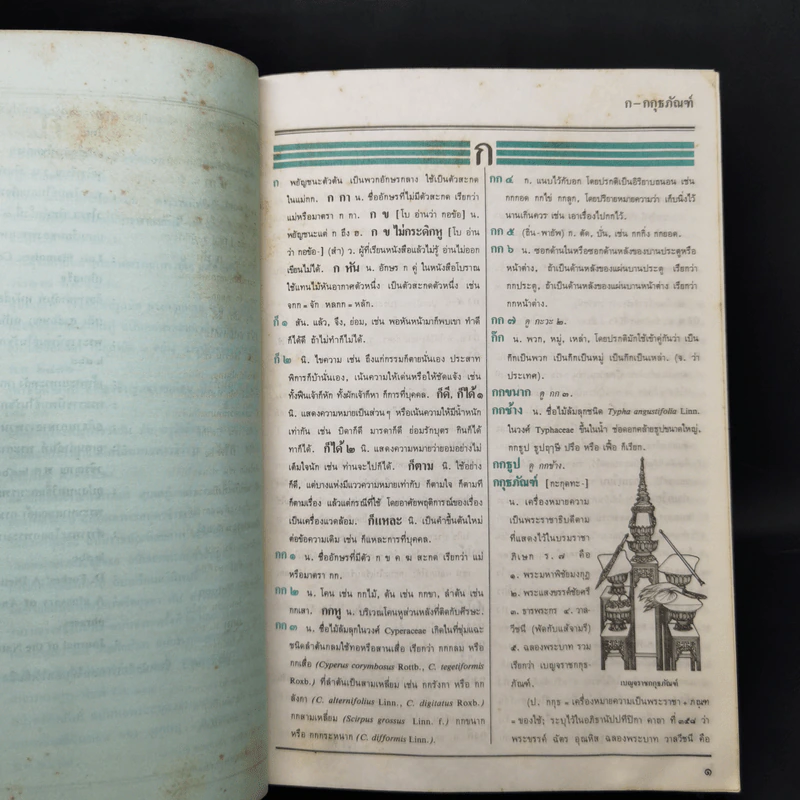 ก–กกุธภัณฑ์
ก
ก พยัญชนะตัวต้น เป็นพวกอักษรกลาง ใช้เป็นตัวสะกด
ในแม่กก. ก กา น. ชื่ออักษรที่ไม่มีตัวสะกด เรียกว่า
แม่หรือมาตรา ก กา. ก ข [โบ อ่านว่า กอข้อ] น.
พยัญชนะแต่ ก ถึง ฮ. ก ข ไม่กระดิกหู [โบ อ่าน
ว่า กอข้อ-] (สำ) ว. ผู้ที่เรียนหนังสือแล้วไม่รู้ อ่านไม่ออก
เขียนไม่ได้. ก หัน น. อักษร ก คู่ ในหนังสือโบราณ
ใช้แทนไม้หันอากาศตัวหนึ่ง เป็นตัวสะกดตัวหนึ่ง เช่น
จกก = จัก หลกก = หลัก.
ก็ ๑ สัน. แล้ว, จึง, ย่อม, เช่น พอหันหน้ามาก็พบเขา ทำดี
ก็ได้ดี ถ้าไม่ทำก็ไม่ได้.
ก็ ๒ นิ. ไขความ เช่น ถึงแก่กรรมก็ตายนั่นเอง ประสาท
พิการก็บ้านั่นเอง, เน้นความให้เด่นหรือให้ชัดแจ้ง เช่น
ทั้งฟืนเจ้าก็หัก ทั้งผักเจ้าก็หา ก็การที่บุคคล. ก็ดี, ก็ได้ ๑
นิ. แสดงความหมายเป็นส่วนๆ หรือเน้นความให้มีน้ำหนัก
เท่ากัน เช่น บิดาก็ดี มารดาก็ดี ย่อมรักบุตร กินก็ได้
ทาก็ได้. ก็ได้ ๒ นิ. แสดงความหมายว่ายอมอย่างไม่
เต็มใจนัก เช่น ท่านจะไปก็ได้. ก็ตาม นิ. ใช้อย่าง
ก็ดี, แต่บางแห่งมีแนวความหมายเท่ากับ ก็ตามใจ ก็ตามที
ก็ตามเรื่อง แล้วแต่กรณีที่ใช้ โดยอาศัยพฤติการณ์ของเรื่อง
เป็นเครื่องแวดล้อม. ก็แหละ นิ. เป็นคำขึ้นต้นใหม่
ต่อข้อความเดิม เช่น ก็แหละการที่บุคคล.
กก ๑ น. ชื่ออักษรที่มีตัว ก ข ค ฆ สะกด เรียกว่า แม่
หรือมาตรา กก.
กก ๒ น. โคน เช่น กกไม้, ต้น เช่น กกขา, ลำต้น เช่น
กกเสา. กกหู น. บริเวณโคนหูส่วนหลังที่ติดกับศีรษะ.
กก ๓ น. ชื่อไม้ล้มลุกในวงศ์ Cyperaceae เกิดในที่ชุ่มแฉะ
ชนิดลำต้นกลมใช้ทอหรือสานเสื่อ เรียกว่า กกกลม หรือ
กกเสื่อ (Cyperus corymbosus Rottb., C. tegetiformis
Roxb.) ที่ลำต้นเป็นสามเหลี่ยม เช่น กกรังกา หรือ กก
ลังกา (C. alternifolius Linn., C. digitatus Roxb.)
กกสามเหลี่ยม (Scirpus grossus Linn. f.) กกขนาก
หรือ กกกระหนาก (C. difformis Linn.).
กก ๔ ก. แนบไว้กับอก โดยปรกติเป็นอิริยาบถนอน เช่น
กกกอด กกไข่ กกลูก, โดยปริยายหมายความว่า เก็บนิ่งไว้
นานเกินควร เช่น เอาเรื่องไปกกไว้.
กก ๕ (ถิ่น-พายัพ) ก. ตัด, บั่น, เช่น กกกิ่ง กกยอด.
กก ๖ น. ซอกด้านในหรือซอกด้านหลังของบานประตูหรือ
หน้าต่าง, ถ้าเป็นด้านหลังของแผ่นบานประตู เรียกว่า
กกประตู, ถ้าเป็นด้านหลังของแผ่นบานหน้าต่าง เรียกว่า
กกหน้าต่าง.
กก ๗ ดู กะวะ ๒.
ก๊ก น. พวก, หมู่, เหล่า, โดยปรกติมักใช้เข้าคู่กันว่า เป็น
ก๊กเป็นพวก เป็นก๊กเป็นหมู่ เป็นก๊กเป็นเหล่า. (จ. ว่า
ประเทศ).
กกขนาก ดู กก ๓.
กกช้าง น. ชื่อไม้ล้มลุกชนิด Typha angustifolia Linn.
ในวงศ์ Typhaceae ขึ้นในน้ำ ช่อดอกคล้ายธูปขนาดใหญ่,
กกธูป ธูปฤาษี ปรือ หรือ เฟื้อ ก็เรียก.
กกธูป ดู กกช้าง.
กกุธภัณฑ์ [กะกุดทะ-]
น. เครื่องหมายความ
เป็นพระราชาธิบดีตาม
ที่แสดงไว้ในบรมราชา
ภิเษก ร.๗ คือ
๑. พระมหาพิชัยมงกุฎ
๒. พระแสงขรรค์ชัยศรี
๓. ธารพระกร ๔. วาล
วีชนี (พัดกับแส้จามรี)
๕. ฉลองพระบาท รวม
เรียกว่า เบญจราชกกุธ-
ภัณฑ์.
เบญจราชกกุธภัณฑ์
(ป. กกุธ = เครื่องหมายความเป็นพระราชา + ภณฺฑ
= ของใช้; ระบุไว้ในอภิธานัปปทีปิกา คาถา ที่ ๓๕๘ ว่า
พระขรรค์ ฉัตร อุณหิส ฉลองพระบาท วาลวีชนี คือ
๑